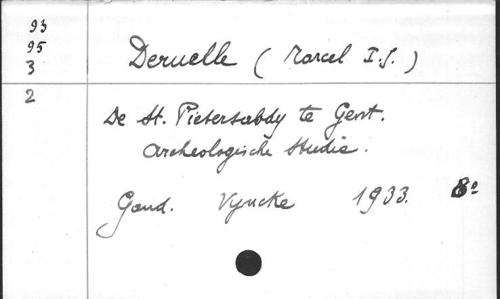 93
95
3
2
Deruelle (Marcel I.J.)
De St. Pietersabdy te Gent.
Archeologische Studie.
Gand. Vyncke 1933. 8º